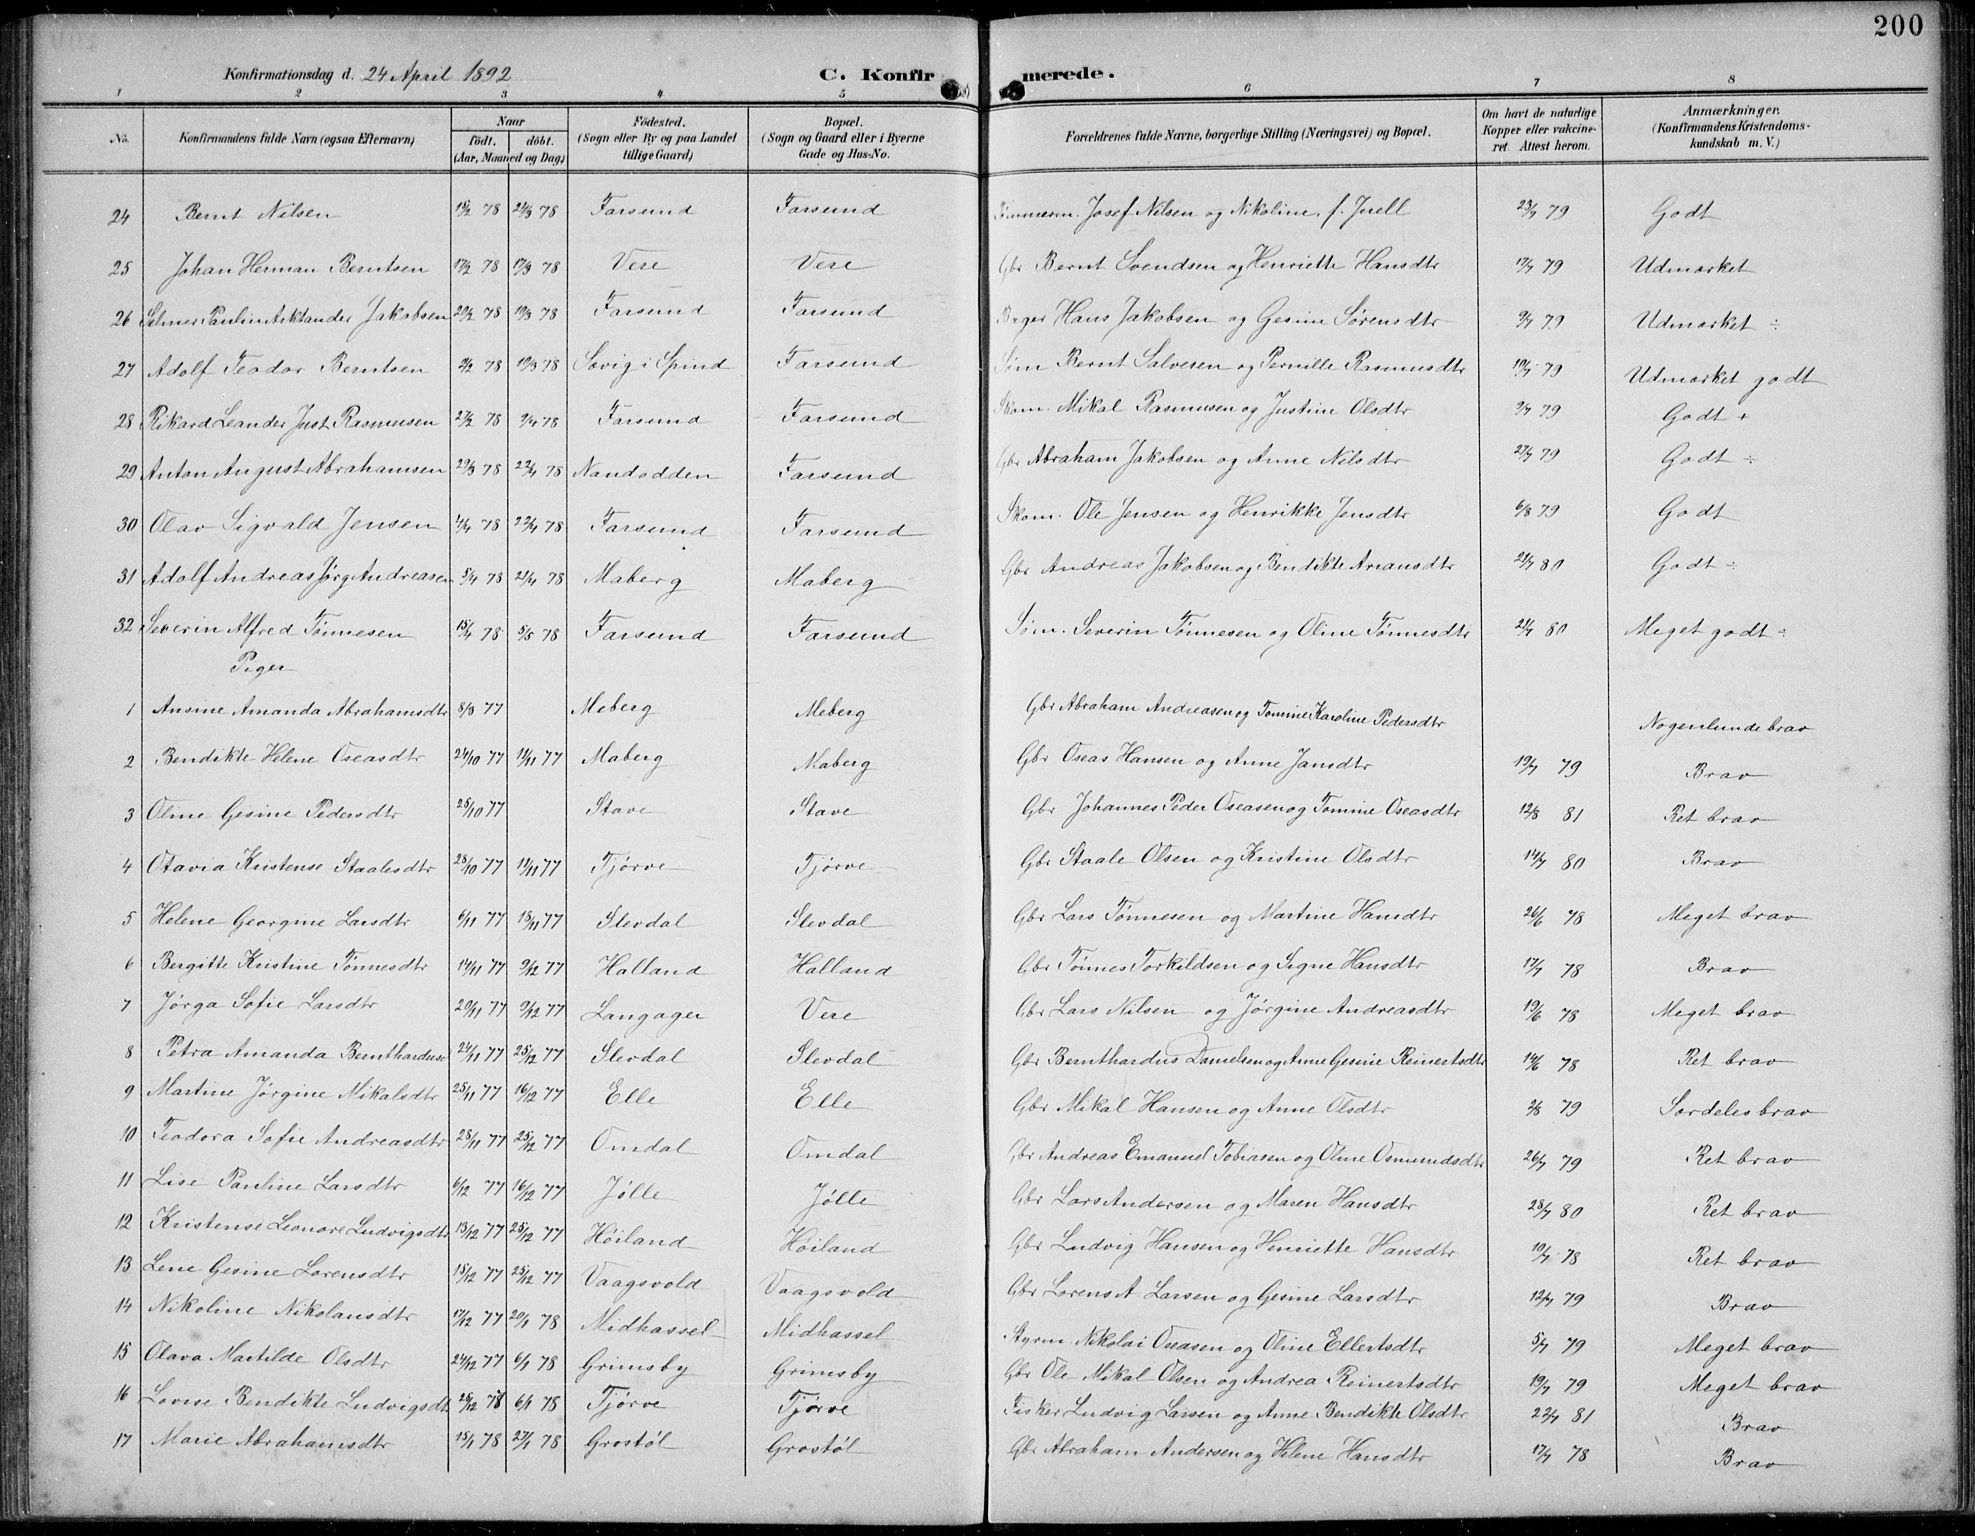 200
Konfirmationsdag d. 24 April 1892 C. Konfirmerede.
1 2 3 4 5 6 7 8
No. Konfirmandens fulde Navn (ogsaa Efternavn) Naar født. døbt. (Aar, Maaned og Dag) Födested. (Sogn eller By og paa Landet tillige Gaard) Bopæl. (Sogn og Gaard eller i Byerne Gade og Hus-No. Forældrenes fulde Navne, borgerlige Stilling (Næringsvei) og Bopæl. Om havt de naturlige Kopper eller vakcineret. Attest herom. Anmærkninger. (Konfirmandens Kristendomskundskab m. V.)
24 Bernt Nilsen 15/2 78 24/3 78 Farsund Farsund Tømmerm. Josef Nilsen og Nikoline f. Juell 23/7 79 Godt
25 Johan Herman Berntsen 17/2 78 17/3 78 Vere Vere Gbr Bernt Svendsen og Henriette Hansdtr 17/7 79 Udmerket
26 Selmer Paulin Asklander Jakobsen 20/2 78 10/3 78 Farsund Farsund Bager Hans Jakobsen og Gesine Sørensdtr 9/7 79 Udmerket ÷
27 Adolf Teodor Berntsen 2/2 78 10/3 78 Søvig i Spind Farsund Søm Bernt Salvesen og Pernille Rasmusdtr 10/7 79 Udmerket godt
28 Rikard Leander Just Rasmusen 27/2 78 7/4 78 Farsund Farsund Skom. Mikal Rasmusen og Justine Olsdtr 9/7 79 Godt +
29 Anton August Abrahamsen 29/3 78 22/4 78 Nandodden Farsund Gbr Abraham Jakobsen og Anne Nilsdtr 27/7 79 Godt ÷
30 Olav Sigvald Jensen 1/4 78 22/4 78 Farsund Farsund Skom. Ole Jensen og Henrikke Jensdtr 6/8 79 Godt
31 Adolf Andreas Jørg Andreasen 5/4 78 21/4 78 Maberg Maberg Gbr Andreas Jakobsen og Bendikte Ariansdtr 21/7 80 Godt ÷
32 Severin Alfred Tønnesen 15/4 78 5/5 78 Farsund Farsund Søm. Severin Tønnesen og Oline Tønnesdtr 21/7 80 Meget godt ÷
Piger
1 Ansine Amanda Abrahamsdtr 8/3 77 Meberg Meberg Gbr Abraham Andreasen og Tomine Karoline Pedersdtr Nogenlunde brav
2 Bendikte Helene Oseasdtr 24/10 77 11/11 77 Maberg Maberg Gbr Oseas Hansen og Anne Jansdtr 19/7 79 Brav
3 Oline Gesine Pedersdtr 25/10 77 Stave Stave Gbr Johannes Peder Oseasen og Tomine Oseasdtr 12/8 81 Ret brav
4 Otavia Kristense Staalesdtr 28/10 77 11/11 77 Tjørve Tjørve Gbr Staale Olsen og Kristine Olsdtr 14/7 80 Brav
5 Helene Georgine Larsdtr 6/11 77 18/11 77 Slevdal Slevdal Gbr Lars Tønnesen og Martine Hansdtr 26/6 78 Meget brav
6 Bergitte Kristine Tønnesdtr 14/11 77 9/12 77 Halland Halland Gbr Tønnes Torkildsen og Signe Hansdtr 17/7 78 Brav
7 Jørga Sofie Larsdtr 20/11 77 9/12 77 Langager Vere Gbr Lars Nilsen og Jørgine Andreasdtr 19/6 78 Meget brav
8 Petra Amanda Bernthardusd 24/11 77 25/12 77 Slevdal Slevdal Gbr Bernthardus Danielsen og Anne Gesine Reinertsdtr 14/6 78 Ret brav
9 Martine Jørgine Mikalsdtr 25/11 77 16/12 77 Elle Elle Gbr Mikal Hansen og Anne Olsdtr 2/8 79 Særdeles brav
10 Teodora Sofie Andreasdtr 28/11 77 25/12 77 Omdal Omdal Gbr Andreas Emanuel Tobiasen og Oline Osmundsdtr 26/7 79 Ret brav
11 Lise Pauline Larsdtr 6/12 77 16/12 77 Jølle Jølle Gbr Lars Andersen og Maren Hansdtr 28/7 80 Ret brav
12 Kristense Leonore Ludvigsdtr 13/12 77 25/12 77 Høiland Høiland Gbr Ludvig Hansen og Henriette Hansdtr 10/7 78 Ret brav
13 Lene Gesine Lorensdtr 15/12 77 25/12 77 Vaagsvold Vaagsvold Gbr Lorens A. Larsen og Gesine Larsdtr 12/7 79 Brav
14 Nikoline Nikolausdtr 17/12 77 20/1 78 Midhassel Midhassel Styrm. Nikolai Oseasen og Oline Ellertsdtr 5/7 79 Meget brav
15 Olava Martilde Olsdtr 24/12 77 6/1 78 Grimsby Grimsby Gbr Ole Mikal Olsen og Andrea Reinertsdtr 19/7 79 Meget brav
16 Lovise Bendikte Ludvigsdt 25/12 77 6/1 78 Tjørve Tjørve Fisker Ludvig Larsen og Anne Bendikte Olsdtr 22/7 81 Brav
17 Marie Abrahamsdtr 15/1 78 27/1 78 Grostøl Grostøl Gbr Abraham Andersen og Helene Hansdtr 17/7 78 Brav